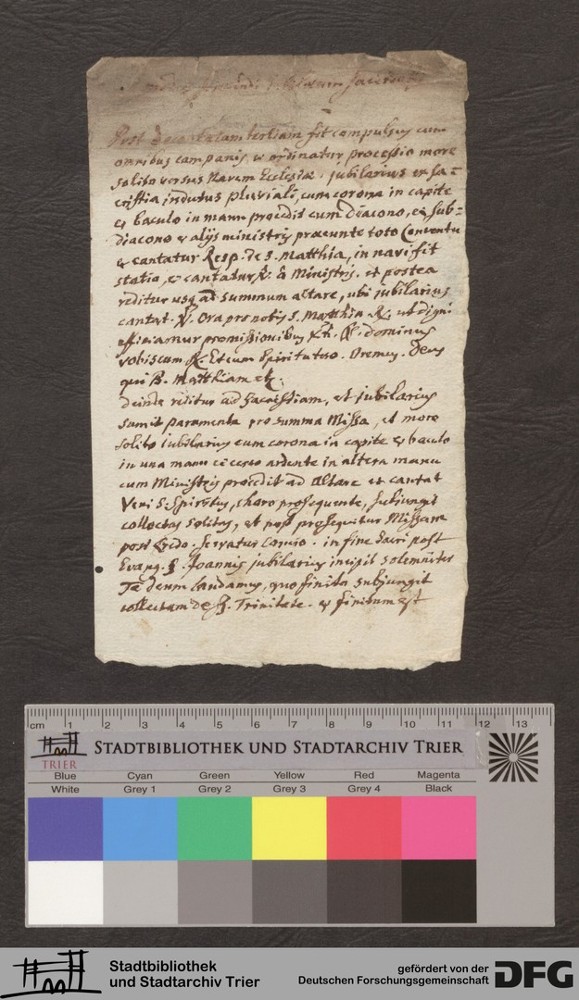 Post decantatam tertiam fit compulsus cum
omnibus campanis, et ordinatur processio more
solito versus Navem Ecclesiæ. jubilarius in sa=
cristia indutus pluviali, cum corona in capite
et baculo in manu procedit cum Diacono, et sub=
diacono et alijs ministris præeunte toto Conventu
et cantatur Resp. de S. Matthia, in navi fit
statio, et cantatur ℣. à Ministris. et postea
reditur usq ad summum altare, ubi jubilarius
cantat ℣. Ora pro nobis S. Matthia ℟. ut digni
efficiamur promissionibus Xti. ℣. dominus
vobiscum ℟. Et cum Spiritu tuo. Oremus. Deus
qui B. Matthiam etc.
deinde reditur ad Sacristiam, et jubilarius
sumit paramenta pro summa Missa, et more
solito iubilarius cum corona in capite et baculo
in una manu et cereo ardente in altera manu
cum Ministris procedit ad Altare et cantat
Veni S. Spiritus, choro prosequente, subjungit
collectas solitas, et post prosequitur Missam
post Credo. servatur in fine sacri post
Evang. S. Joannis jubilarius incipit solemniter
Te deum laudamus, quo finito subjungit
collectam de SS. Trinitate. et finitum est
cm 1 2 3 4 5 6 7 8 9 10 11 12 13
TRIER
STADTBIBLIOTHEK UND STADTARCHIV TRIER
Blue Cyan Green Yellow Red Magenta
White Grey 1 Grey 2 Grey 3 Grey 4 Black
Stadtbibliothek
und Stadtarchiv Trier
gefördert von der
Deutschen Forschungsgemeinschaft
DFG